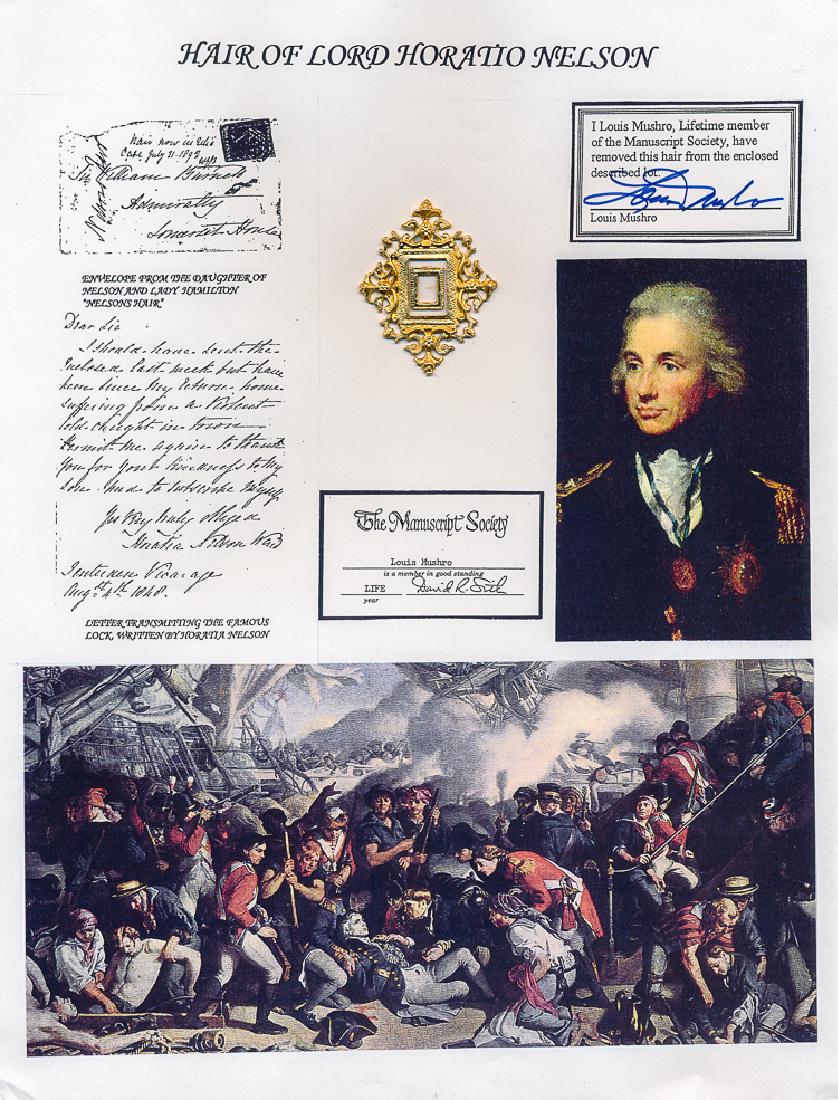 HAIR OF LORD HORATIO NELSON
Hair now in Relic
Case July 21-1892
Sir William Burnett
Admiralty
Somerset House
ENVELOPE FROM THE DAUGHTER OF
NELSON AND LADY HAMILTON
"NELSONS HAIR"
Dear Sir
I should have sent the
Enclosed last week but have
been since my return home
suffering from a Violent
cold caught in town
Permit me again to thank
you for your kindness to my
son. And to subscribe myself
Yrs Very truly Obliged
Horatia Nelson Ward
Tenterden Vicarage
Augst 4th 1848.
LETTER TRANSMITTING THE FAMOUS
LOCK, WRITTEN BY HORATIA NELSON
The Manuscript Society
Louis Mushro
is a member in good standing
LIFE
year
I Louis Mushro, Lifetime member
of the Manuscript Society, have
removed this hair from the enclosed
described lot.
Louis Mushro
Louis Mushro